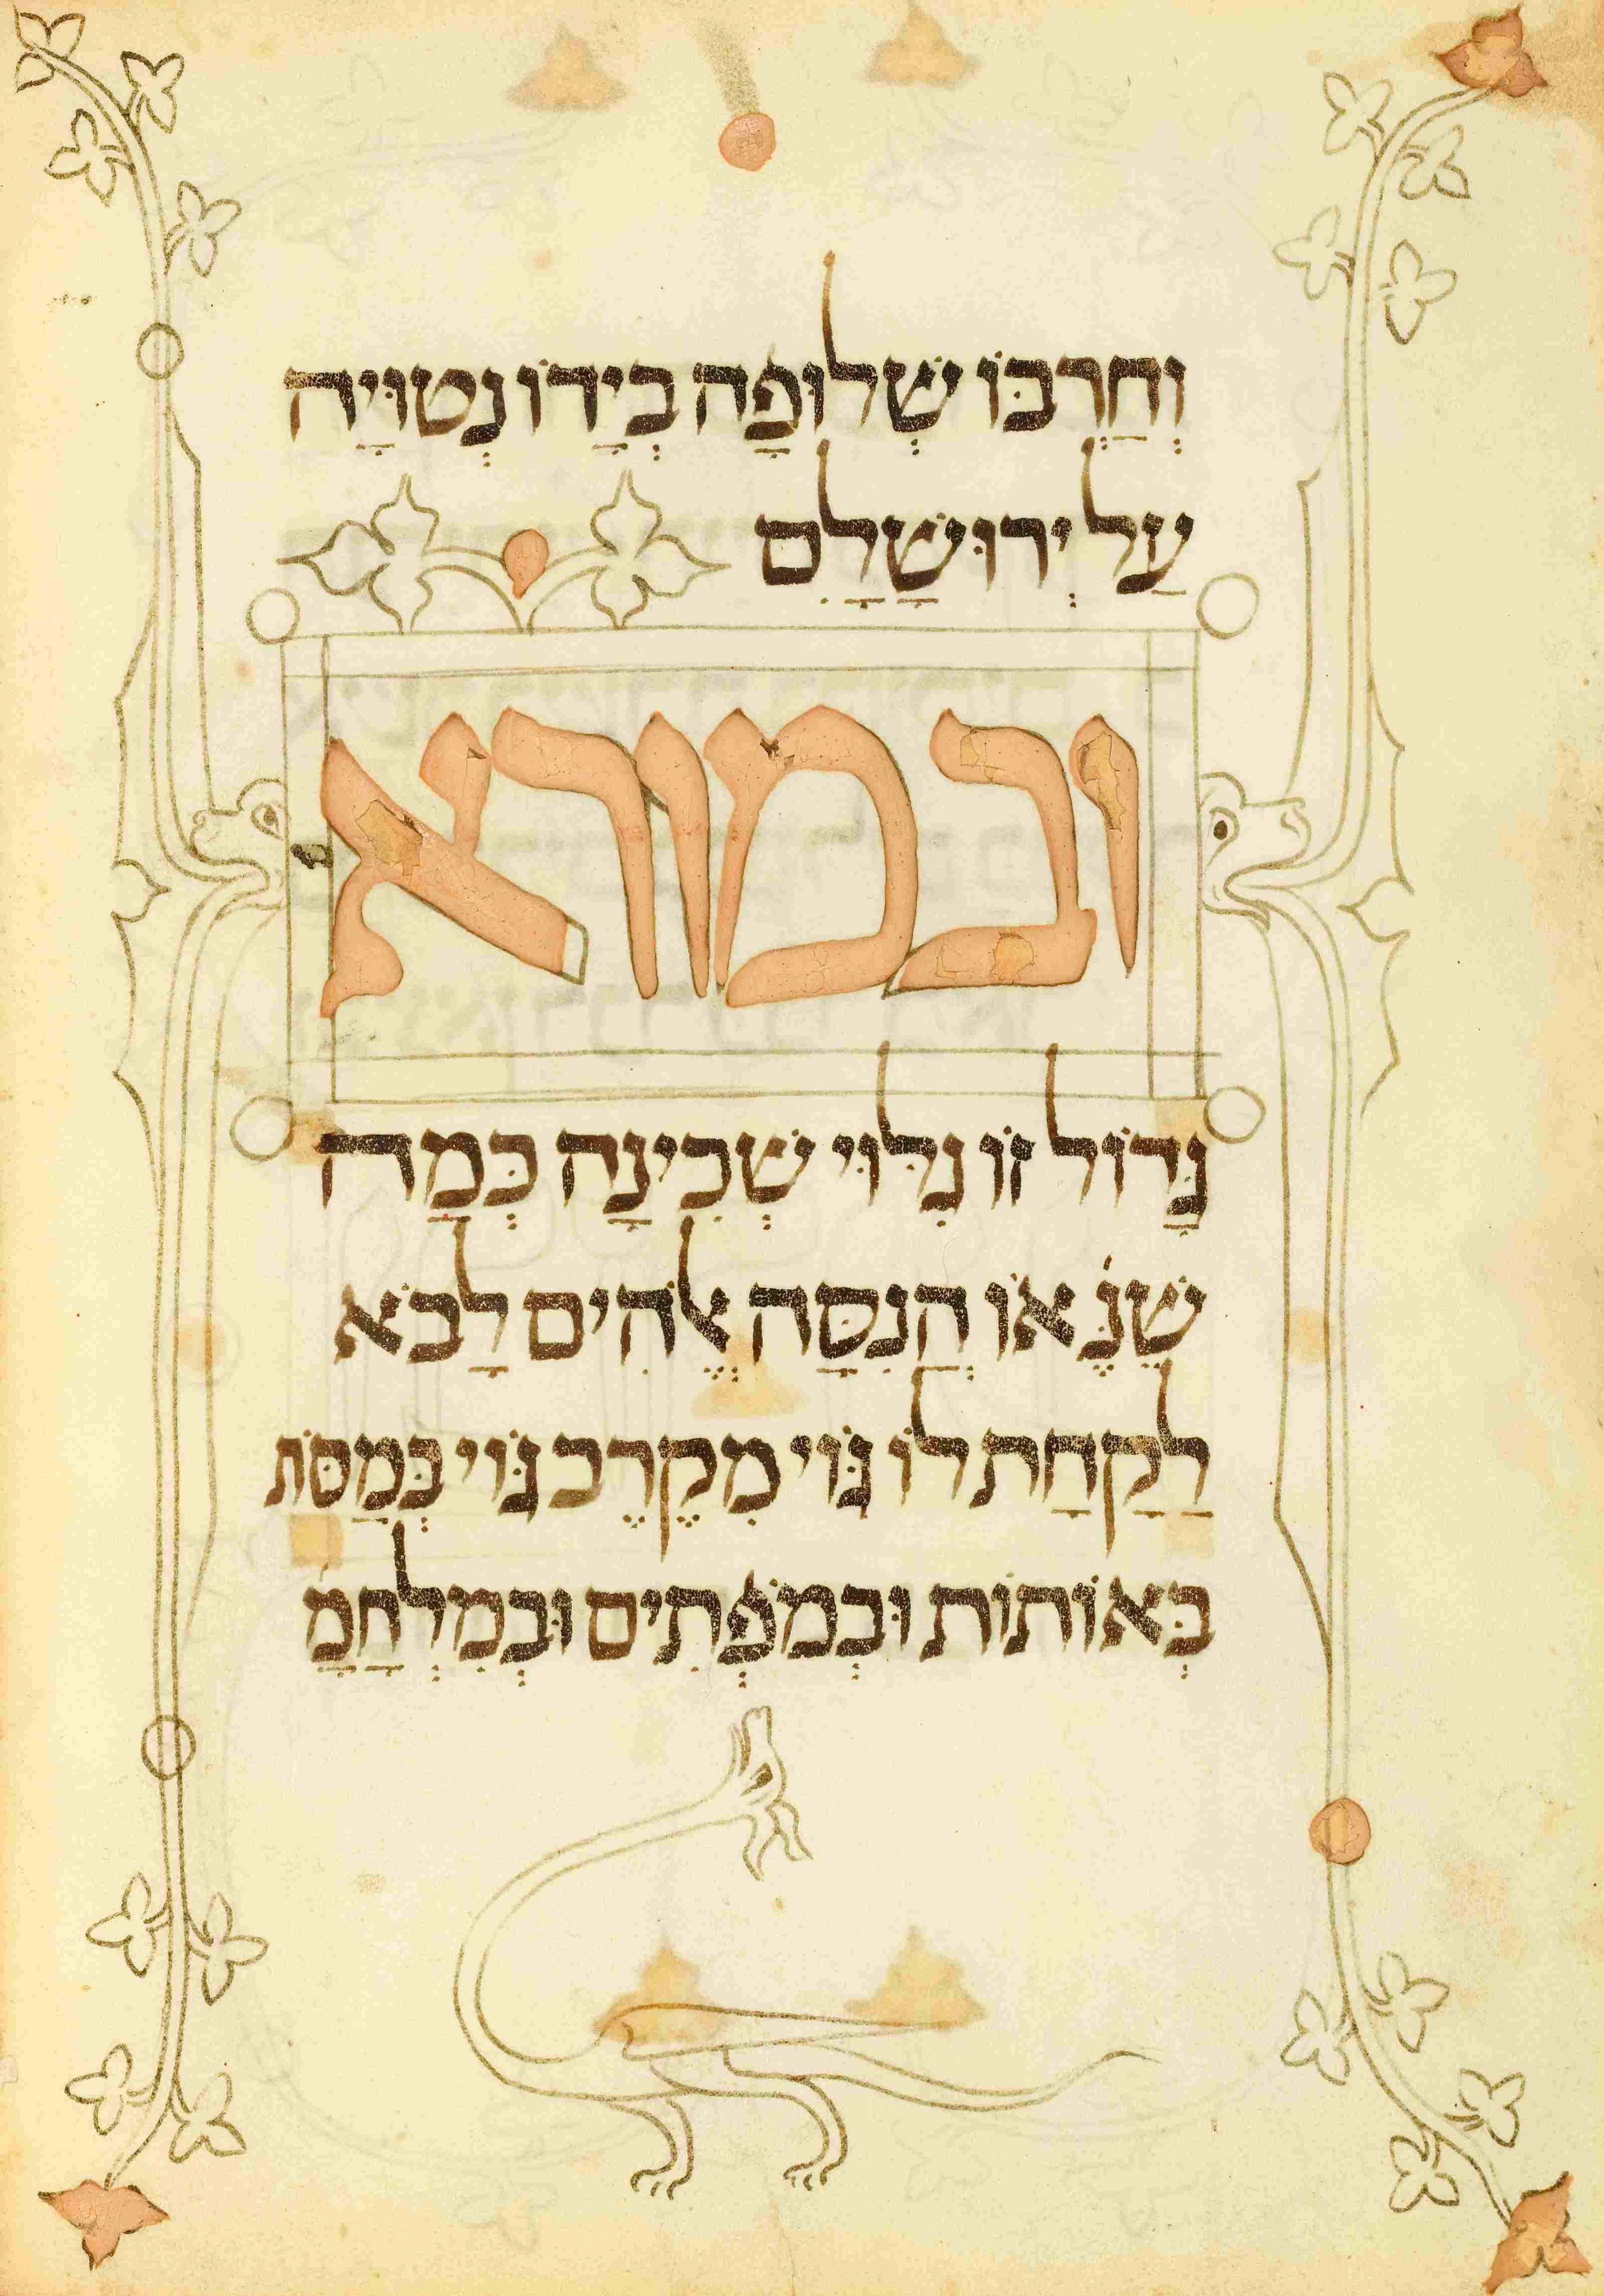 וְחַרְבּוֹ שְׁלוּפָה בְּיָדוֹ נְטוּיָה
עַל יְרוּשָׁלַםִ
ובמורא
גָּדוֹל זוֹ גִלּוּי שְׁכִינָה כְּמָה
שֶׁנֶּ אוֹ הֲנִסָּה אֱלֹהִים לָבֹא
לָקַחַת לוֹ גּוֹי מִקֶּרֶב גּוֹי בְּמַסֹּת
בְּאוֹתוֹת וּבְמֹפְתִים וּבְמִלְחָמָ